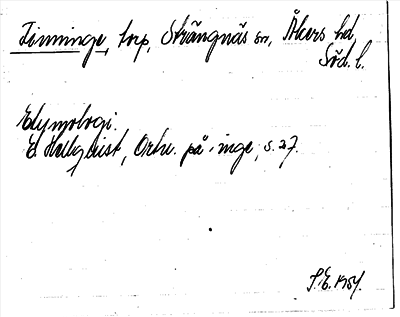 Finninge, torp, Strängnäs sn, Åkers hd,
Söd. l.
Etymologi.
E Hellquist, Ortn. på -inge, s. 27.
S.E. 1954.